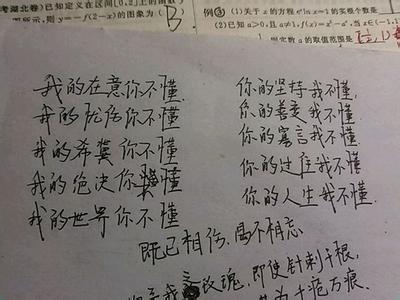 考湖北卷)已知定义在区间[0,2]上的函数
图所示,则 y=-f(2-x)的图象为( B
例③(1)关于x的方程 eˣln x=1 的实根个数是
(2)已知 a>0,且 a≠1,f(x)=x²-aˣ,当 x∈(-1,
则实数a的取值范围是
我的在意你不懂.
我的你不懂
我的希冀你不懂
我的绝决你懂
我的世界你不懂
你的坚持我不懂,
你的善变我不懂
你的寡言我不懂
你的过往我不懂
你的人生我不懂.
既已相伤,曷不相忘
我玫瑰,即使针刺千根,
千疮万痕.